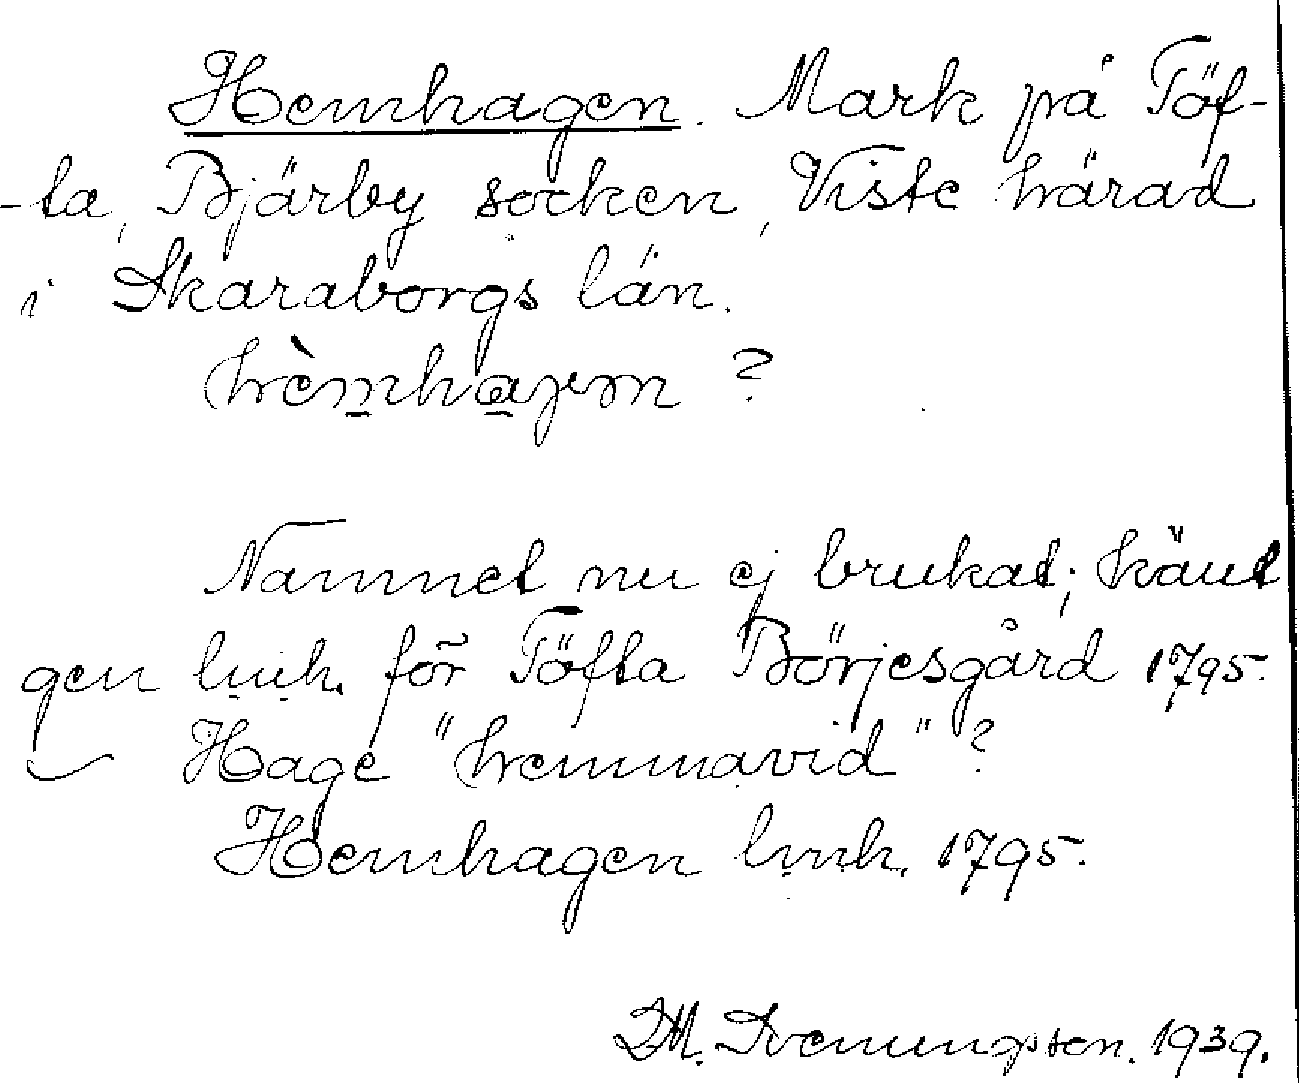 Hemhagen. Mark på Töf-
-ta, Bjärby socken, Viste härad
i Skaraborgs län.
hèmhagen ?
Namnet nu ej brukat; känt
gen lmk. för Töfta Börjesgård 1795.
Hage "hemmavid" ?
Hemhagen lmk. 1795.
D.M. Svenungsson. 1939.